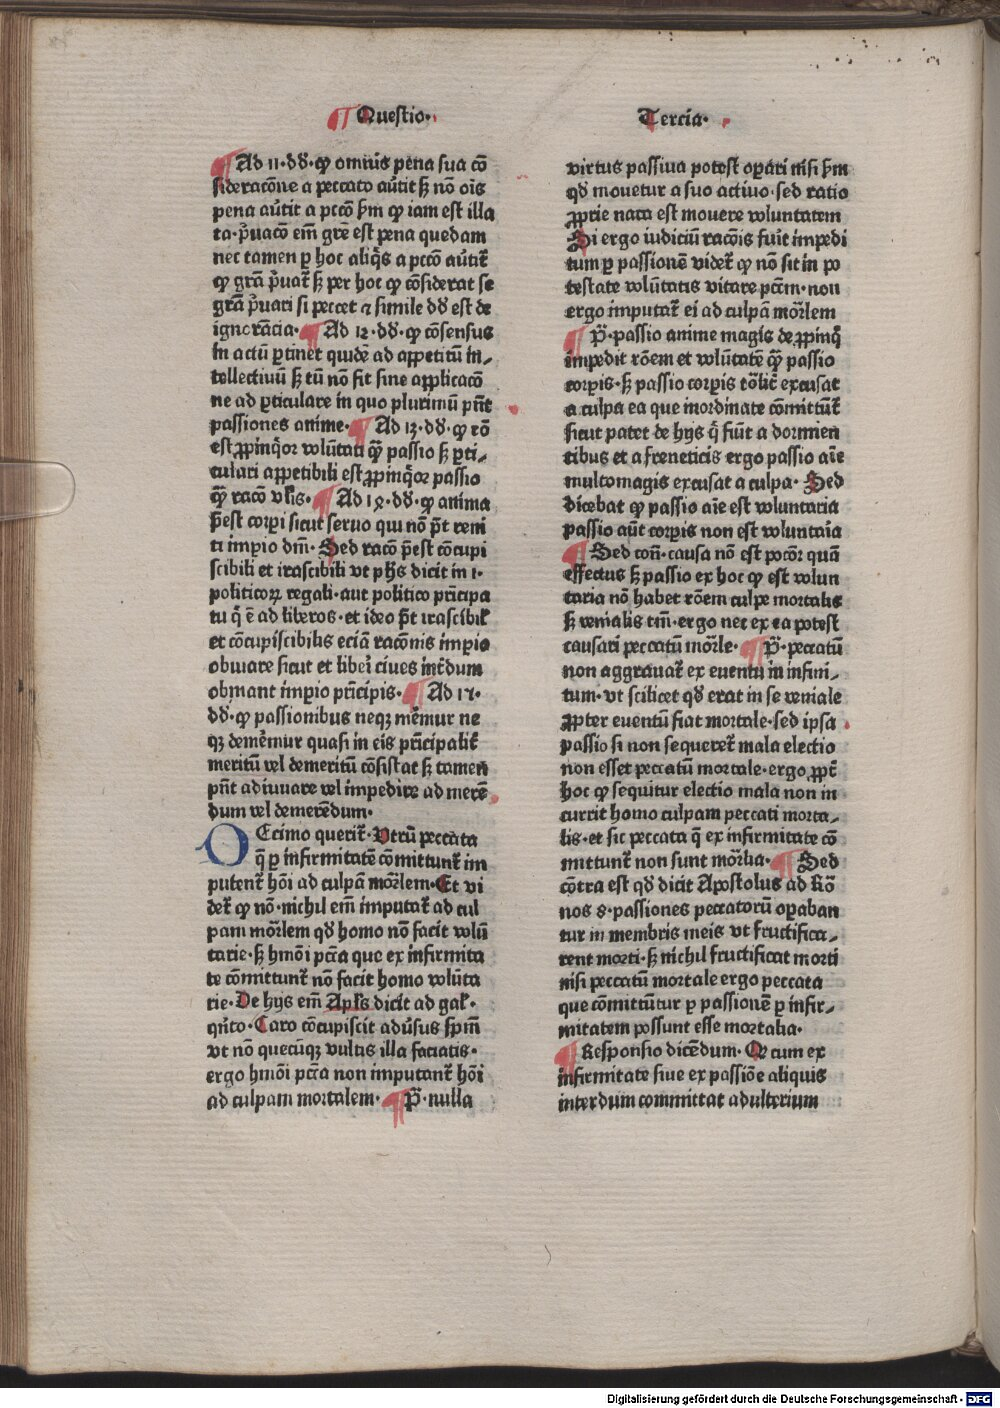 Questio.
Ad 11·dd̄·ꝙ omnis pena sua cō
sideracōne a peccato aūtit sꝫ nō oīs
pena aūtit a pccō s̄m ꝙ iam est illa
ta·p̄uacō em̄ grē est pena quedam
nec tamen ꝑ hoc aliq̄s a pccō aūtit᷑
ꝙ grā p̄uat᷑ sꝫ per hoc ꝙ cōsiderat se
grā p̄uari si peccet ⁊ simile dd̄ est de
ignorācia· Ad 12·dd̄·ꝙ cōsensus
in actū ꝑtinet quidē ad appetitū in⸗
tellectiuū sꝫ tn̄ nō fit sine applicacō
ne ad ꝑticulare in quo plurimū pn̄t
passiones anime· Ad 13·dd̄·ꝙ rō
est ꝓpinq̄or volūtati qꝫ̄ passio sꝫ ꝑti⸗
culari appetibili est ꝓpinq̄or passio
qꝫ̄ racō vl̄is· Ad 14·dd̄·ꝙ anima
p̄est corpi sicut seruo qui nō p̄t reni
ti imꝑio dn̄i· Sed racō p̄est cōcupi
scibili et irascibili vt ph̄s dicit in 1·
politicoꝝ regali·aut politico prīcipa
tu q̄ ē ad liberos·et ideo p̄t irascibil᷑
et cōcupiscibilis eciā racōnis imꝑio
obuiare sicut et liberi ciues int̄dum
obuiant imꝑio prīcipis· Ad 15·
dd̄·ꝙ passionibus neqꝫ mēmur ne
qꝫ demēmur quasi in eis prīcipalit᷑
meritū vel demeritū cōsistat sꝫ tamen
pn̄t adiuuare vel impedire ad merē
dum vel demerēdum·
DEcimo querit᷑·Vtrū peccata
q̄ ꝑ infirmitatē cōmittunt᷑ im
putent᷑ hōi ad culpā mōrlem·Et vi
det᷑ ꝙ nō·nichil em̄ imputat᷑ ad cul
pam mōrlem qd̄ homo nō facit volū
tarie·sꝫ hmōi pccā que ex infirmita
te cōmittunt᷑ nō facit homo volūta
rie·De hijs em̄ Apl̄s dicit ad gal᷑·
qn̄to·Caro cōcupiscit adūsus sp̄m
vt nō quecūqꝫ vultis illa faciatis·
ergo hmōi pccā non imputant᷑ hōi
ad culpam mortalem· P̄·nulla
Tercia·
virtus passiua potest oꝑari nisi s̄m
qd̄ mouetur a suo actiuo·sed ratio
ꝓprie nata est mouere voluntatem
Si ergo iudiciū racōis fuit᷑ impedi
tum ꝑ passionē videt᷑ ꝙ nō sit in po
testate volūtatis vitare pctm̄·non
ergo imputat᷑ ei ad culpam mōrlem
P̄·passio anime magis de ꝓpinq̄
impedit rōem et volūtatē qꝫ̄ passio
corꝑis·sꝫ passio corꝑis tōlit᷑ excusat
a culpa ea que inordinate cōmittūt᷑
sicut patet de hijs q̄ fiūt a dormien
tibus et a freneticis ergo passio aīe
multomagis excusat a culpa· Sed
dicebat ꝙ passio aīe est voluntaria
passio aūt corꝑis non est voluntaīa
Sed con̄·causa nō est pocōr quā
effectus sꝫ passio ex hoc ꝙ est volun
taria nō habet rōem culpe mortalis
sꝫ venialis tm̄·ergo nec ex ea potest
causari peccatū mōrle· P̄·peccatū
non aggrauat᷑ ex euentu in infini⸗
tum·vt scilicet qd̄ erat in se veniale
ꝓpter euentū fiat mortale·sed ipsa
passio si non sequeret᷑ mala electio
non esset peccatū mortale·ergo ꝓpt᷑
hoc ꝙ sequitur electio mala non in
currit homo culpam peccati morta⸗
lis·et sic peccata q̄ ex infirmitate cō
mittunt᷑ non sunt mōrlia· Sed
cōtra est qd̄ dicit Apostolus ad Rō
nos 8·passiones peccatorū oꝑaban
tur in membris meis vt fructifica⸗
rent morti·sꝫ nichil fructificat morti
nisi peccatū mortale ergo peccata
que cōmittūtur ꝑ passionē ꝑ infir⸗
mitatem possunt esse mortalia·
Responsio dicēdum·Qꝛ cum ex
infirmitate siue ex passiōe aliquis
interdum committat adulterium
Digitalisierung gefördert durch die Deutsche Forschungsgemeinschaft - DFG